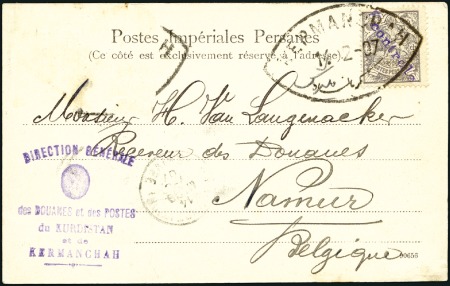 Postes Impériales Persanes
(Ce côté est exclusivement réservé à l'adresse)
KERMANCHAH
Monsieur H. Van Langenacker
Receveur des Douanes
Namur
Belgique
DIRECTION GÉNÉRALE
des DOUANES et des POSTES
du KURDISTAN
et de
KERMANCHAH